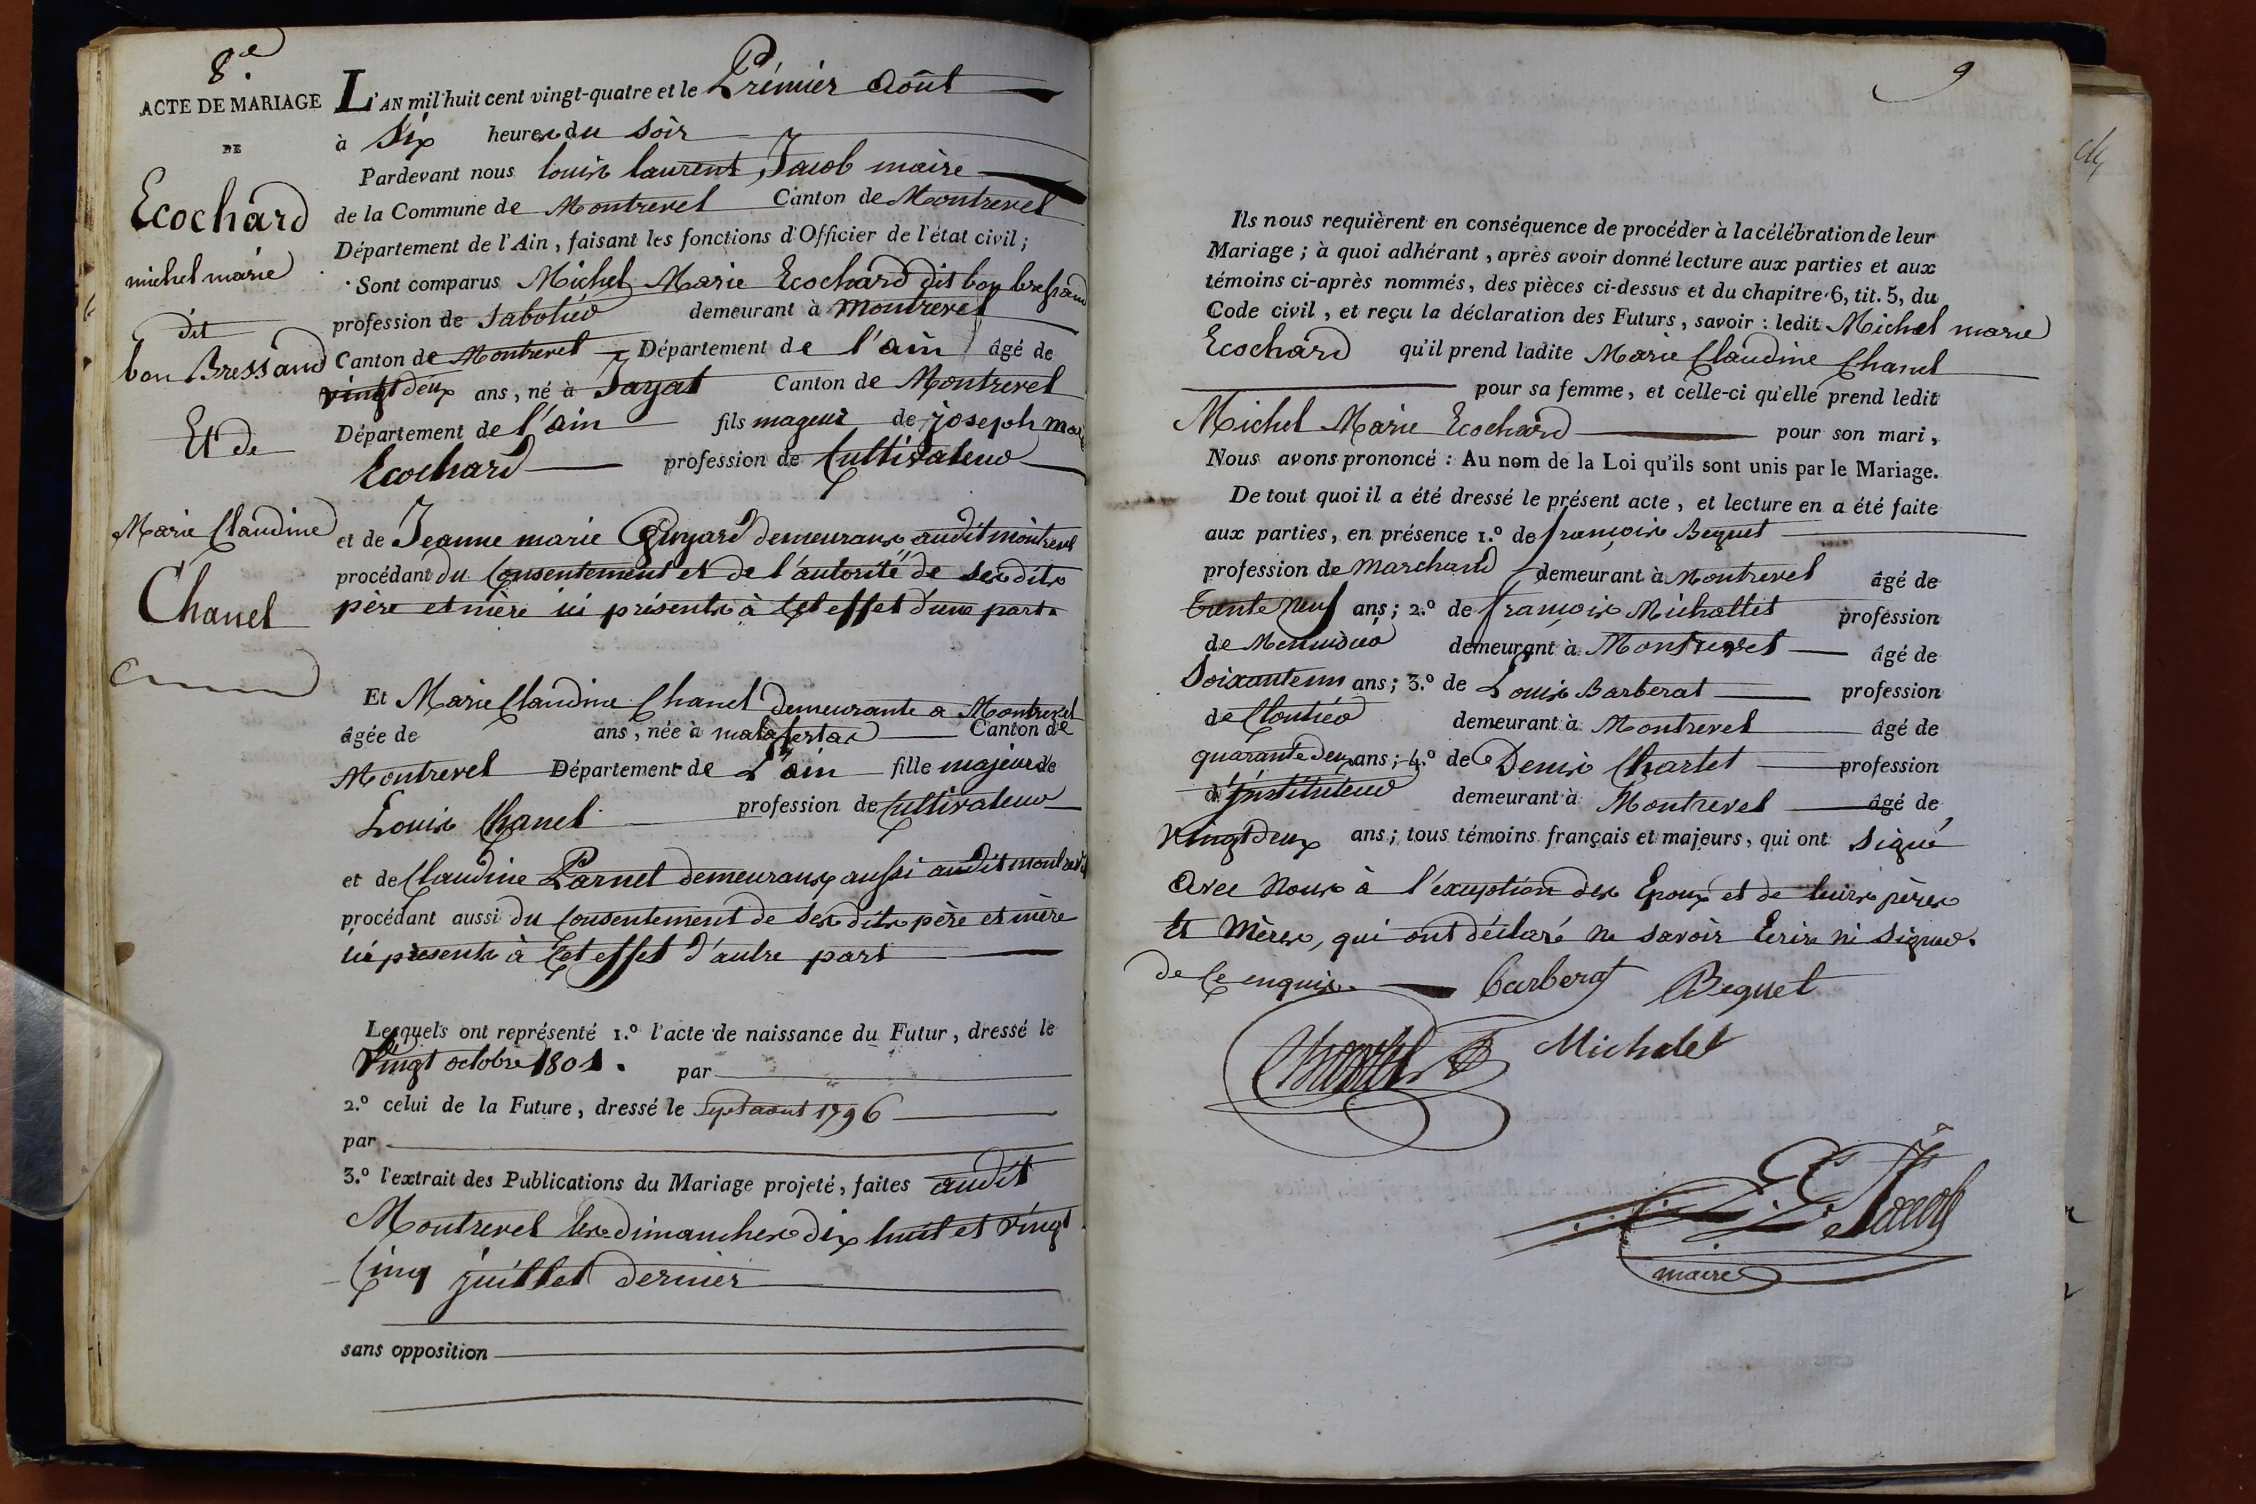 8e.
ACTE DE MARIAGE
DE
Ecochard
michel marie
dit
bon Bressand
Et de
Marie Claudine
Chanel
L'AN mil huit cent vingt-quatre et le Prémier Août
à Six heures du Soir
Pardevant nous louis laurent Jacob maire
de la Commune de Montrevel Canton de Montrevel
Département de l'Ain, faisant les fonctions d'Officier de l'état civil;
Sont comparus Michel Marie Ecochard dit bon bressand
profession de Sabotier demeurant à Montrevel
Canton de Montrevel Département de l'ain âgé de
vingt deux ans, né à Jayat Canton de Montrevel
Département de l'ain fils mageur de joseph marie
Ecochard profession de Cultivateur
et de Jeanne marie Guyard demeurans audit montrevel
procédant du Consentement et de l'autorité de Ses dits
père et mère ici présents à Cet effet d'une part.
Et Marie Claudine Chanel demeurante a Montrevel
âgée de ans, née à malafertas Canton de
Montrevel Département de L'ain fille majeure de
Louis Chanel profession de Cultivateur
et de Claudine Parnet demeurans aussi audit montrevel
procédant aussi du Consentement de Ses dits père et mère
ici présents à Cet effet d'autre part
Lesquels ont représenté 1.º l'acte de naissance du Futur, dressé le
Vingt octobre 1801. par
2.º celui de la Future, dressé le Sept aout 1796
par
3.º l'extrait des Publications du Mariage projeté, faites audit
Montrevel les dimanches dix huit et vingt
Cinq juillet dernier
sans opposition
9
Ils nous requièrent en conséquence de procéder à la célébration de leur
Mariage; à quoi adhérant, après avoir donné lecture aux parties et aux
témoins ci-après nommés, des pièces ci-dessus et du chapitre 6, tit. 5, du
Code civil, et reçu la déclaration des Futurs, savoir: ledit Michel marie
Ecochard qu'il prend ladite Marie Claudine Chanel
pour sa femme, et celle-ci qu'elle prend ledit
Michel Marie Ecochard pour son mari,
Nous avons prononcé: Au nom de la Loi qu'ils sont unis par le Mariage.
De tout quoi il a été dressé le présent acte, et lecture en a été faite
aux parties, en présence 1.º de françois Bequet
profession de Marchand demeurant à Montrevel âgé de
trente neuf ans; 2.º de françois Michallet profession
de Menuisier demeurant à Montrevel âgé de
Soixante un ans; 3.º de Louis Barberat profession
de Cloutier demeurant à Montrevel âgé de
quarante deux ans; 4.º de Denis Chartet profession
d'Instituteur demeurant à Montrevel âgé de
vingt deux ans; tous témoins français et majeurs, qui ont Signé
Avec Nous à l'exception des Epoux et de leurs pères
Et Mères, qui ont déclaré Ne savoir Ecrire ni Signer.
de Ce enquis. barberat Bequet
Michalet
L. L. Jacob
maire